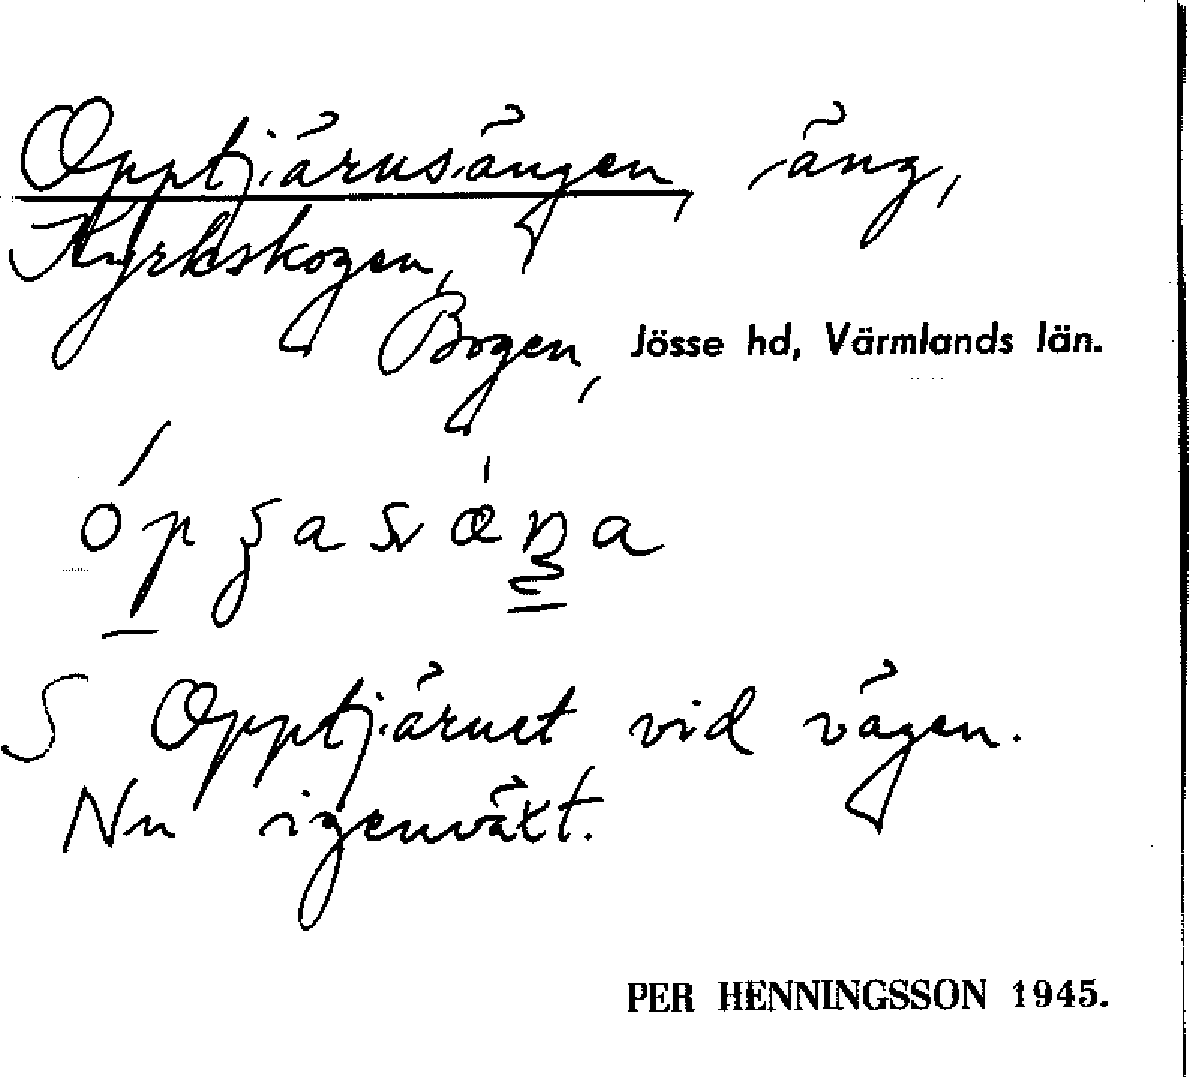 Opptjärnsängen, äng,
Kyrkskogen,
Bogen, Jösse hd, Värmlands län.
S Opptjärnet vid vägen.
Nu igenväxt.
PER HENNINGSSON 1945.